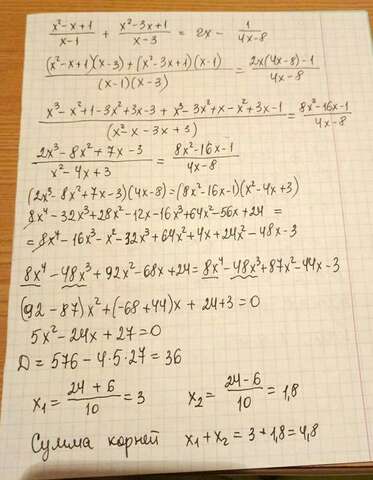 (x²-x+1)/(x-1) + (x²-3x+1)/(x-3) = 2x - 1/(4x-8)
((x²-x+1)(x-3)+(x²-3x+1)(x-1))/((x-1)(x-3)) = (2x(4x-8)-1)/(4x-8)
(x³-x²+1-3x²+3x-3+x³-3x²+x-x²+3x-1)/(x²-x-3x+3) = (8x²-16x-1)/(4x-8)
(2x³-8x²+7x-3)/(x²-4x+3) = (8x²-16x-1)/(4x-8)
(2x³-8x²+7x-3)(4x-8)=(8x²-16x-1)(x²-4x+3)
8x⁴-32x³+28x²-12x-16x³+64x²-56x+24 =
= 8x⁴-16x³-x²-32x³+64x²+4x+24x²-48x-3
8x⁴-48x³+92x²-68x+24=8x⁴-48x³+87x²-44x-3
(92-87)x²+(-68+44)x+24+3=0
5x²-24x+27=0
D=576-4·5·27=36
x₁=(24+6)/10=3 x₂=(24-6)/10=1,8
Сумма корней x₁+x₂=3+1,8=4,8